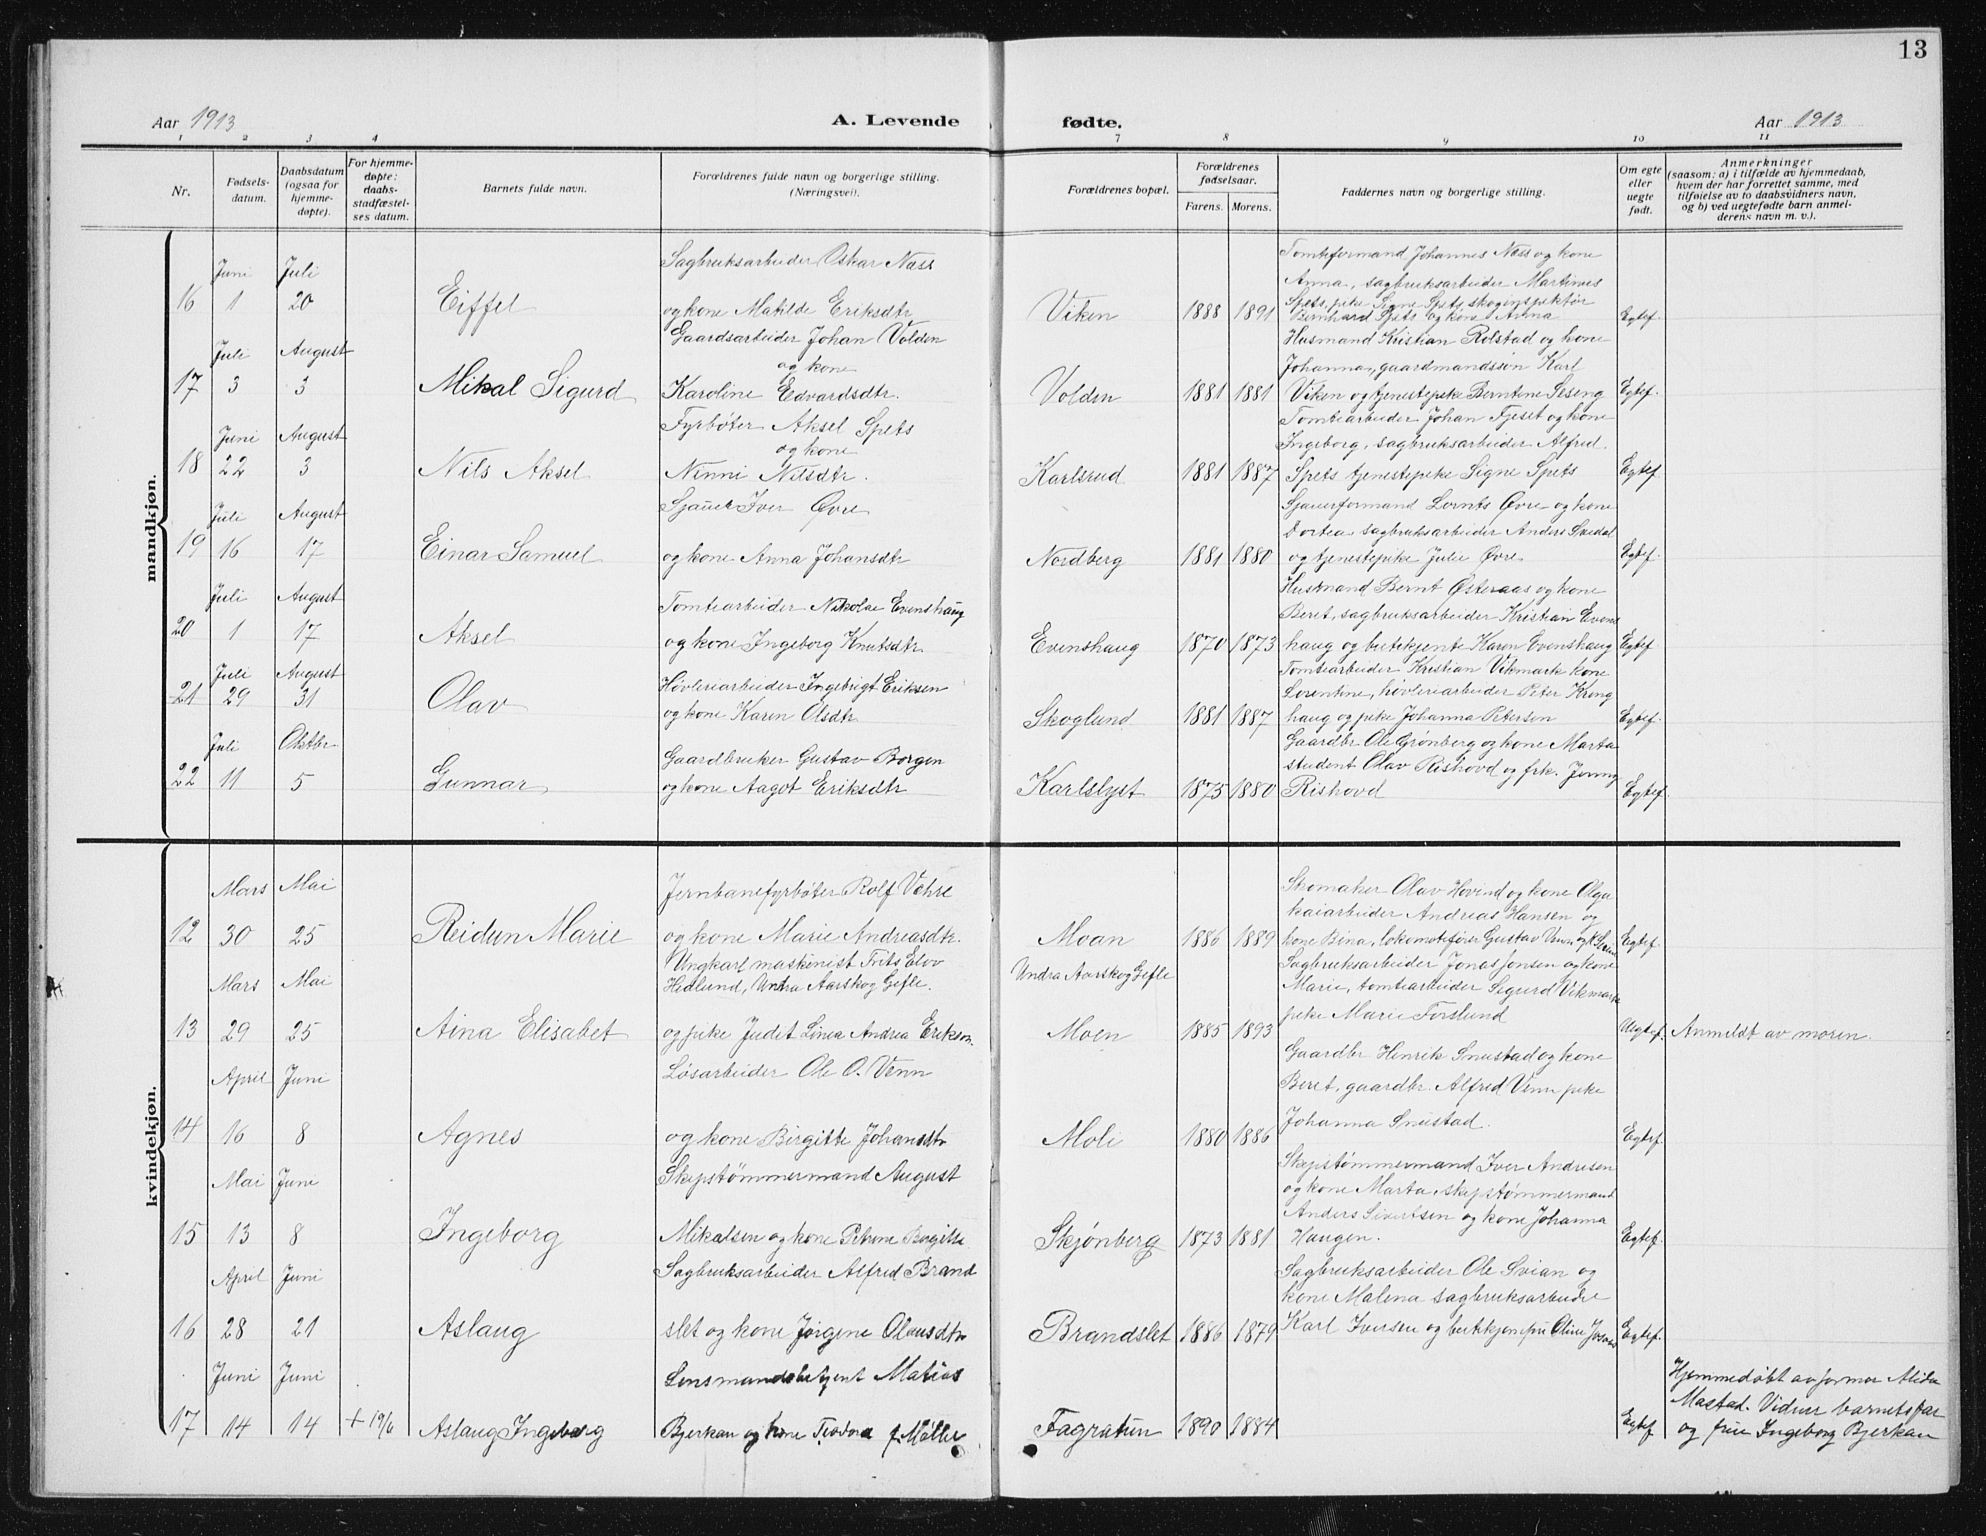 13
Aar 1913 A. Levende fødte. Aar 1913
1 2 3 4 7 8 9 10 11
Nr.
Fødsels-
datum.
Daabsdatum
(ogsaa for
hjemme-
døpte).
For hjemme-
døpte:
daabs-
stadfæstel-
ses datum.
Barnets fulde navn.
Forældrenes fulde navn og borgerlige stilling.
(Næringsvei).
Forældrenes bopæl.
Forældrenes
fødselsaar.
Farens. Morens.
Faddernes navn og borgerlige stilling.
Om egte
eller
uegte
født.
Anmerkninger
(saasom: a) i tilfælde av hjemmedaab,
hvem der har forrettet samme, med
tilføielse av to daabsvidners navn,
og b) ved uegtefødte barn anmel-
derens navn m. v.).
mandkjøn.
16
Juni
1
Juli
20
Eiffel
Sagbruksarbeider Oskar Næss
og kone Matilde Eriksdtr
Viken
1888 1891
Tomteformand Johannes Næss og kone
Anna, sagbruksarbeider Martinus
Spets, pike Signe Spets, skoginspektør
Bernhard Spets og kone Anna
Egtef.
17
Juli
3
August
3
Mikal Sigurd
Gaardsarbeider Johan Volden
og kone
Karoline Edvardsdtr.
Volden
1881 1881
Husmand Kristian Rolstad og kone
Johanna, gaardmandssøn Karl
Viken og tjenestepike Berntine Seseng
Egtef.
18
Juni
22
August
3
Nils Aksel
Fyrbøter Aksel Spets
og kone
Nenni Nilsdtr.
Karlsrud
1881 1887
Tomtearbeider Johan Fjeset og kone
Ingeborg, sagbruksarbeider Alfred
Spets tjenestepike Signe Spets
Egtef
19
Juli
16
August
17
Einar Samuel
Sjauer Iver Øvre
og kone Anna Johansdtr
Nordberg
1881 1880
Sjauerformand Lornts Øvre og kone
Dortea sagbruksarbeider Anders Svedal
og tjenestepike Julie Øvre
Egtef.
20
Juli
1
August
17
Aksel
Tomtearbeider Nikolai Evenshaug
og kone Ingeborg Knutsdtr.
Evenshaug
1870 1873
Husmand Bernt Østeraas og kone
Beret, sagbruksarbeider Kristian Evens
haug og butikjente Karen Evenshaug
Egtef.
21
Juli
29
August
31
Olav
Høvleriarbeider Ingebrigt Eriksen
og kone Karen Olsdtr
Skoglund
1881 1887
Tomtearbeider Kristian Vikmark kone
Lorentine, høvleriarbeider Peter Krong
haug og pike Johanna Peterson
Egtef.
22
Juli
11
Oktbr.
5
Gunnar
Gaardbruker Gustav Borgen
og kone Aagot Eriksdtr
Karlslyst
1875 1880
Gaardbr Ole Grønberg og kone Marta
student Olav Rishovd og frk. Jenny
Rishovd
Egtef.
kvindekjøn.
12
Mars
30
Mai
25
Reidun Marie
Jernbanefyrbøter Rolf Vahse
og kone Marie Andreasdtr.
Moan
1886 1889
Skomaker Olav Hovind og kone Olga
kaiarbeider Andreas Hansen og
kone Bina, lokomotivfører Gustav
Egtef.
13
Mars
29
Mai
25
Aina Elisabet
Ungkarl maskinist Frits Elov
Hedlund, Undra Aarskog Gefle.
og pike Judet Linea Andrea Erikson
Undra Aarskog Gefle
Moen
1885 1893
Sagbruksarbeider Jonas Jonsen og kone
Marie, tomtearbeider Sigurd Vikmark
pike Marie Forslund
Uegtef.
Anmeldt av moren.
14
April
16
Juni
8
Agnes
Løsarbeider Ole O. Venn
og kone Birgitte Johansdtr
Moli
1880 1886
Gaardbr Henrik Snustad og kone
Beret, gaardbr. Alfred Venn pike
Johanna Snustad.
Egtef.
15
Mai
13
Juni
8
Ingeborg
Skipstømmermand August
Mikalsen og kone Petrine Borgitte
Skjønberg
1873 1881
Skipstømmermand Iver Andresen
og kone Marta, skipstømmermand
Anders Sivertsen og kone Johanna
Haugen.
Egtef.
16
April
28
Juni
21
Aslaug
Sagbruksarbeider Alfred Brand
slet og kone Jørgine Olausdtr
Brandslet
1886 1879
Sagbruksarbeider Ole Svian og
kone Malena sagbruksarbeider
Karl Iversen og butikjomfru Oline
Egtef.
17
Juni
14
Juni
14
+ 19/6
Aslaug Ingeborg
Lensmandsbetjent Matias
Bjerkan og kone Teodora f. Møller
Fagratun
1890 1884
Egtef
Hjemmedøbt av jormor Alida
Mastad. Vidner barnets far
og fru Ingeborg Bjerkan